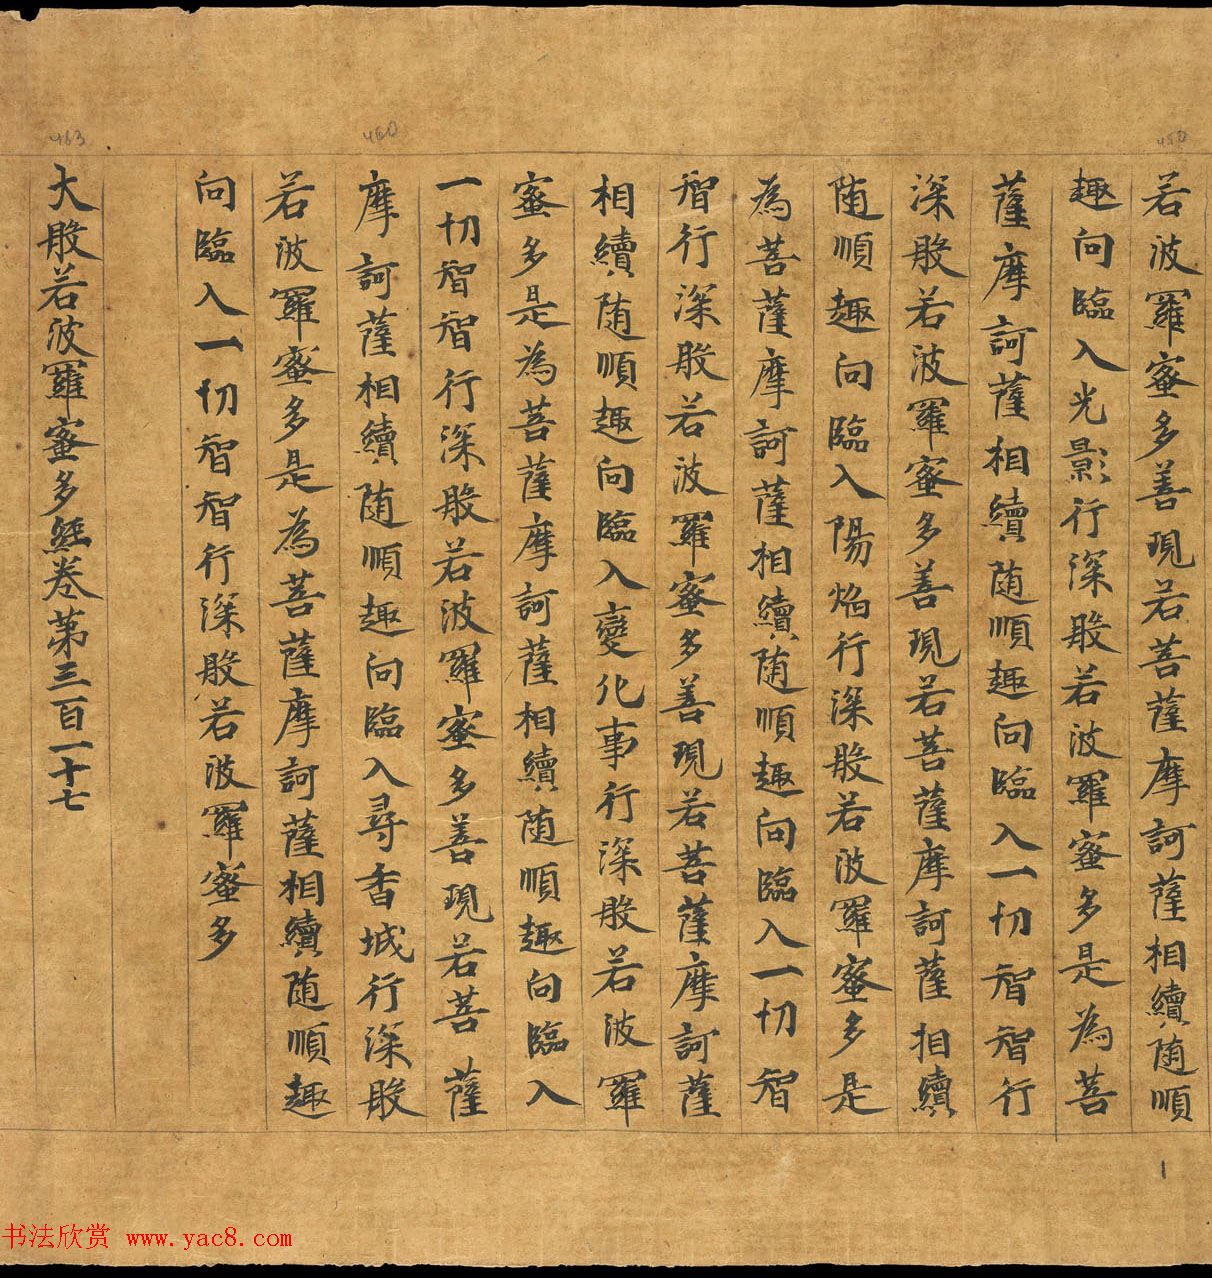 450
460
463
若波羅蜜多善現若菩薩摩訶薩相續随順
趣向臨入光影行深般若波羅蜜多是為菩
薩摩訶薩相續随順趣向臨入一切智智行
深般若波羅蜜多善現若菩薩摩訶薩相續
随順趣向臨入陽焰行深般若波羅蜜多是
為菩薩摩訶薩相續随順趣向臨入一切智
智行深般若波羅蜜多善現若菩薩摩訶薩
相續随順趣向臨入變化事行深般若波羅
蜜多是為菩薩摩訶薩相續随順趣向臨入
一切智智行深般若波羅蜜多善現若菩薩
摩訶薩相續随順趣向臨入尋香城行深般
若波羅蜜多是為菩薩摩訶薩相續随順趣
向臨入一切智智行深般若波羅蜜多
大般若波羅蜜多經卷第三百一十七
1
书法欣赏 www.yac8.com